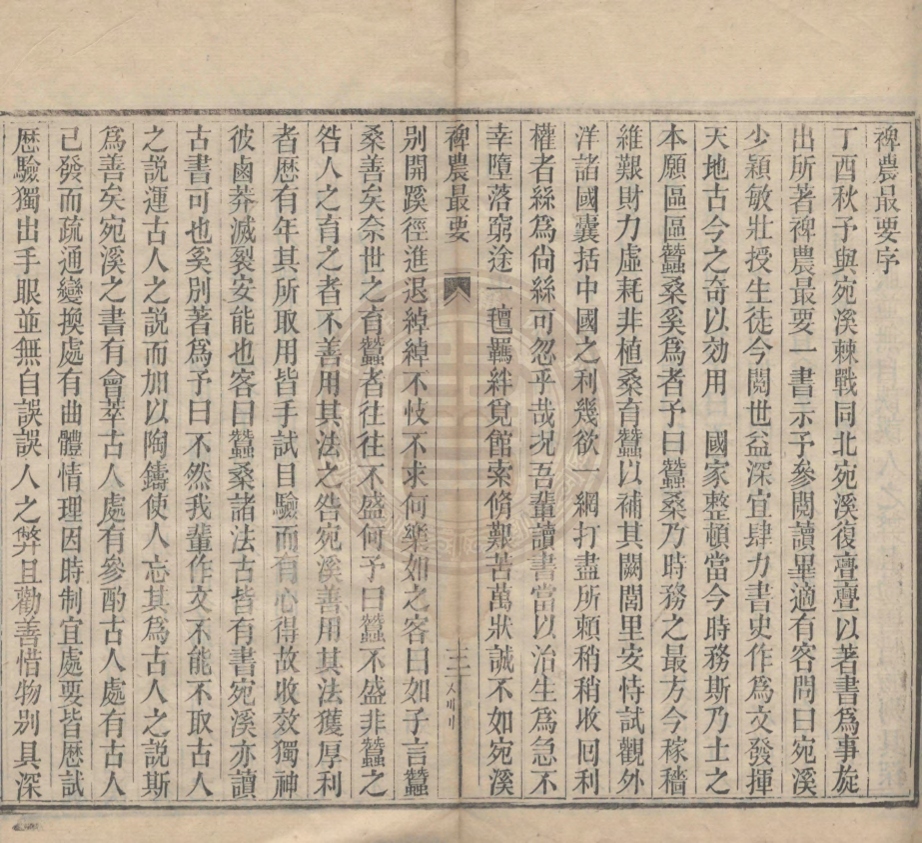 裨農最要序
丁酉秋予與宛溪棘戰同北宛溪復亹亹以著書爲事旋
出所著裨農最要一書示予參閱讀畢適有客問曰宛溪
少穎敏壯授生徒今閱世益深宜肆力書史作爲文發揮
天地古今之奇以効用　國家整頓當今時務斯乃士之
本願區區蠶桑奚爲者予曰蠶桑乃時務之最方今稼穡
維艱財力虛耗非植桑育蠶以補其闕閭里安恃試觀外
洋諸國囊括中國之利幾欲一網打盡所頼稍稍收囘利
權者絲爲尙絲可忽乎哉况吾輩讀書當以治生爲急不
幸墮落窮途一氊羈絆覓館索脩艱苦萬狀誠不如宛溪
裨農最要
別開蹊徑進退綽綽不忮不求何樂如之客曰如子言蠶
桑善矣奈世之育蠶者往往不盛何予曰蠶不盛非蠶之
咎人之育之者不善用其法之咎宛溪善用其法獲厚利
者歴有年其所取用皆手試目驗而有心得故收效獨神
彼鹵莽滅裂安能也客曰蠶桑諸法古皆有書宛溪亦讀
古書可也奚別著爲予曰不然我輩作文不能不取古人
之説運古人之説而加以陶鑄使人忘其爲古人之説斯
爲善矣宛溪之書有會萃古人處有參酌古人處有古人
已發而疏通變換處有曲體情理因時制宜處要皆歴試
歴驗獨出手眼並無自誤誤人之弊且勸善惜物別具深